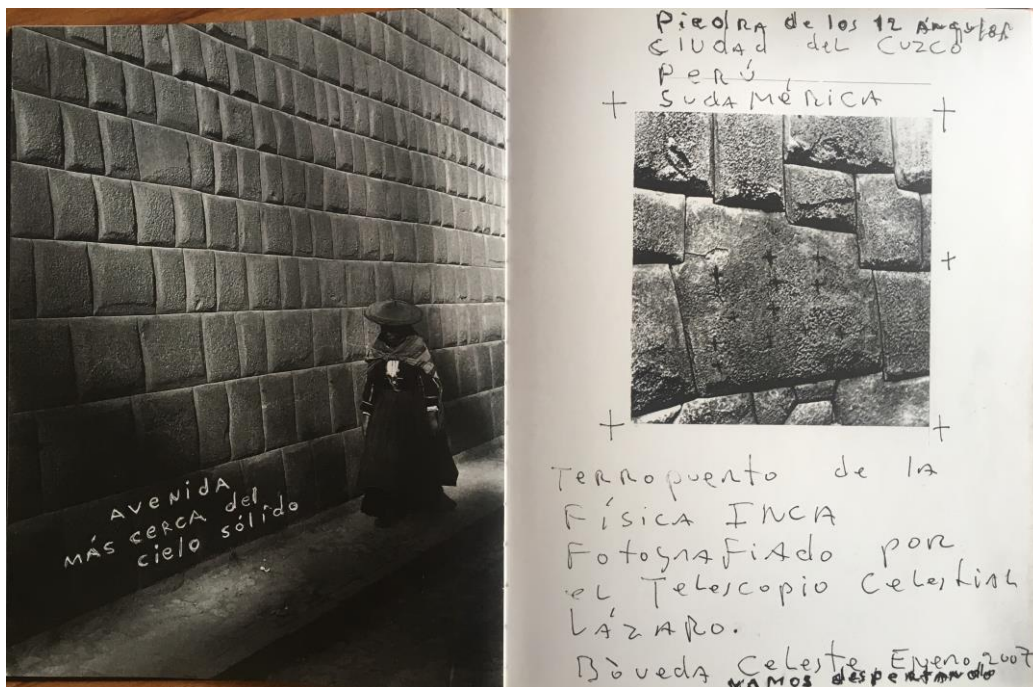 AVENIDA
MÁS CERCA del
cielo sólido
PiedRA de los 12 ÁNgulos
CIUDAd deL CUZCO
PERÚ
SUdAMÉRICA
TERROpuERto de lA
FíSICA INCA
FotogRAFiAdo poR
eL Telescopio CelestiAL
LÁZARO.
BÒveda Celeste ENero 2007
VAMOS despertando